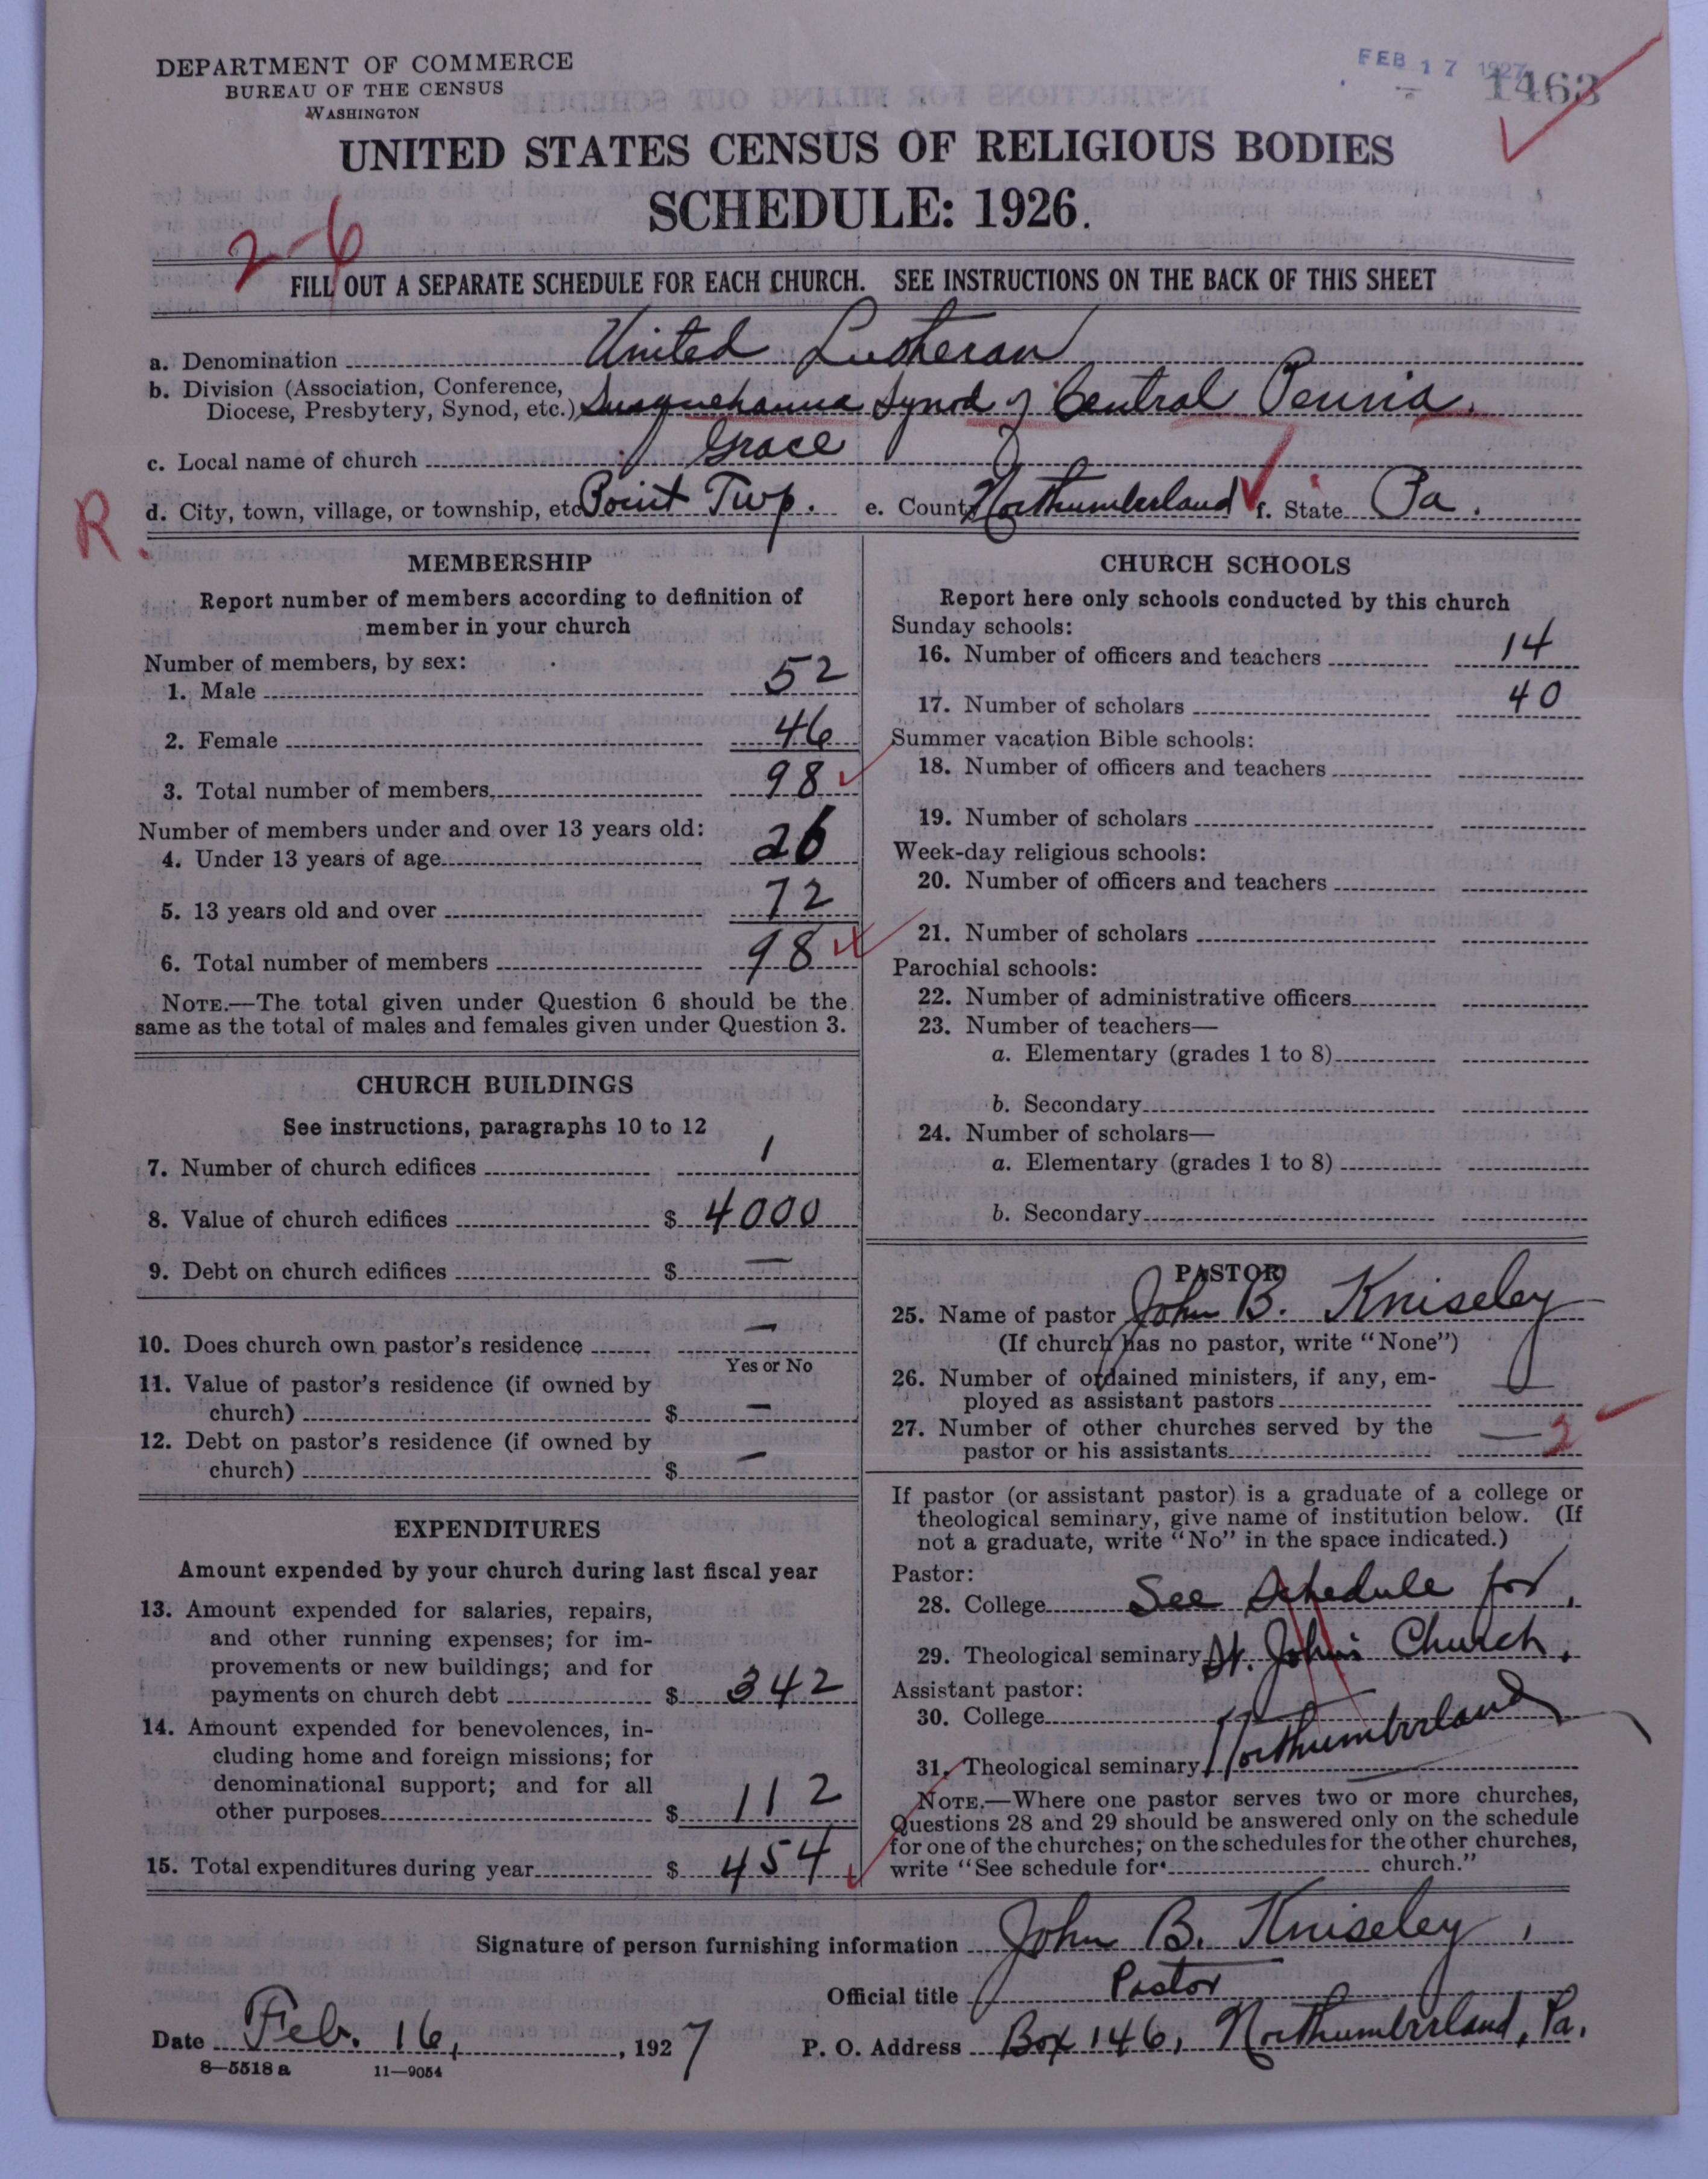 DEPARTMENT OF COMMERCE
BUREAU OF THE CENSUS
WASHINGTON
FEB 17 1927
1463
UNITED STATES CENSUS OF RELIGIOUS BODIES
SCHEDULE: 1926.
2-6
FILL OUT A SEPARATE SCHEDULE FOR EACH CHURCH. SEE INSTRUCTIONS ON THE BACK OF THIS SHEET
a. Denomination United Lutheran
b. Division (Association, Conference,
Diocese, Presbytery, Synod, etc.) Susquehanna Synod of Central Penna.
c. Local name of church Grace
R.
d. City, town, village, or township, etc. Point Twp. e. County Northumberland f. State Pa.
MEMBERSHIP
Report number of members according to definition of
member in your church
Number of members, by sex:
1. Male 52
2. Female 46
3. Total number of members 98
Number of members under and over 13 years old:
4. Under 13 years of age 26
5. 13 years old and over 72
6. Total number of members 98
NOTE.—The total given under Question 6 should be the
same as the total of males and females given under Question 3.
CHURCH BUILDINGS
See instructions, paragraphs 10 to 12
7. Number of church edifices 1
8. Value of church edifices $ 4000
9. Debt on church edifices $ —
10. Does church own pastor's residence —
Yes or No
11. Value of pastor's residence (if owned by
church) $ —
12. Debt on pastor's residence (if owned by
church) $ —
EXPENDITURES
Amount expended by your church during last fiscal year
13. Amount expended for salaries, repairs,
and other running expenses; for im-
provements or new buildings; and for
payments on church debt $ 342
14. Amount expended for benevolences, in-
cluding home and foreign missions; for
denominational support; and for all
other purposes $ 112
15. Total expenditures during year $ 454
CHURCH SCHOOLS
Report here only schools conducted by this church
Sunday schools:
16. Number of officers and teachers 14
17. Number of scholars 40
Summer vacation Bible schools:
18. Number of officers and teachers
19. Number of scholars
Week-day religious schools:
20. Number of officers and teachers
21. Number of scholars
Parochial schools:
22. Number of administrative officers
23. Number of teachers—
a. Elementary (grades 1 to 8)
b. Secondary
24. Number of scholars—
a. Elementary (grades 1 to 8)
b. Secondary
PASTOR
25. Name of pastor John B. Kniseley
(If church has no pastor, write "None")
26. Number of ordained ministers, if any, em-
ployed as assistant pastors —
27. Number of other churches served by the
pastor or his assistants — 2
If pastor (or assistant pastor) is a graduate of a college or
theological seminary, give name of institution below. (If
not a graduate, write "No" in the space indicated.)
Pastor:
28. College See Schedule for
29. Theological seminary St. John's Church,
Assistant pastor:
30. College
31. Theological seminary Northumberland
NOTE.—Where one pastor serves two or more churches,
Questions 28 and 29 should be answered only on the schedule
for one of the churches; on the schedules for the other churches,
write "See schedule for church."
Signature of person furnishing information John B. Kniseley,
Official title Pastor
Date Feb. 16, 1927 P. O. Address Box 146, Northumberland, Pa.
8—5518 a 11—9054